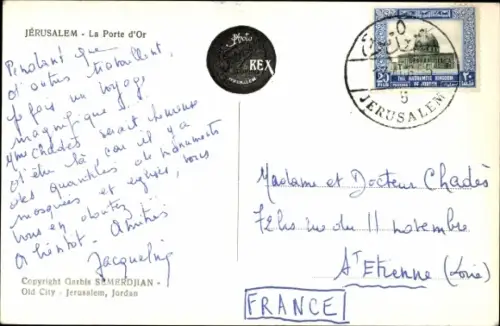 JÉRUSALEM - La Porte d'Or
Pendant que
d'autres travaillent,
je fais un voyage
magnifique
Mme Chadès serait heureuse
d'être là, car il y a
des quantités de monuments
mosquées et églises, vous
vous en doutez
A bientôt - Amitiés
Jacqueline
Copyright Garbis SEMERDJIAN -
Old City - Jerusalem, Jordan
REX
THE HASHEMITE KINGDOM
OF JORDAN
JERUSALEM
Madame et Docteur Chadès
72bis rue du 11 novembre
St Etienne (Loire)
FRANCE